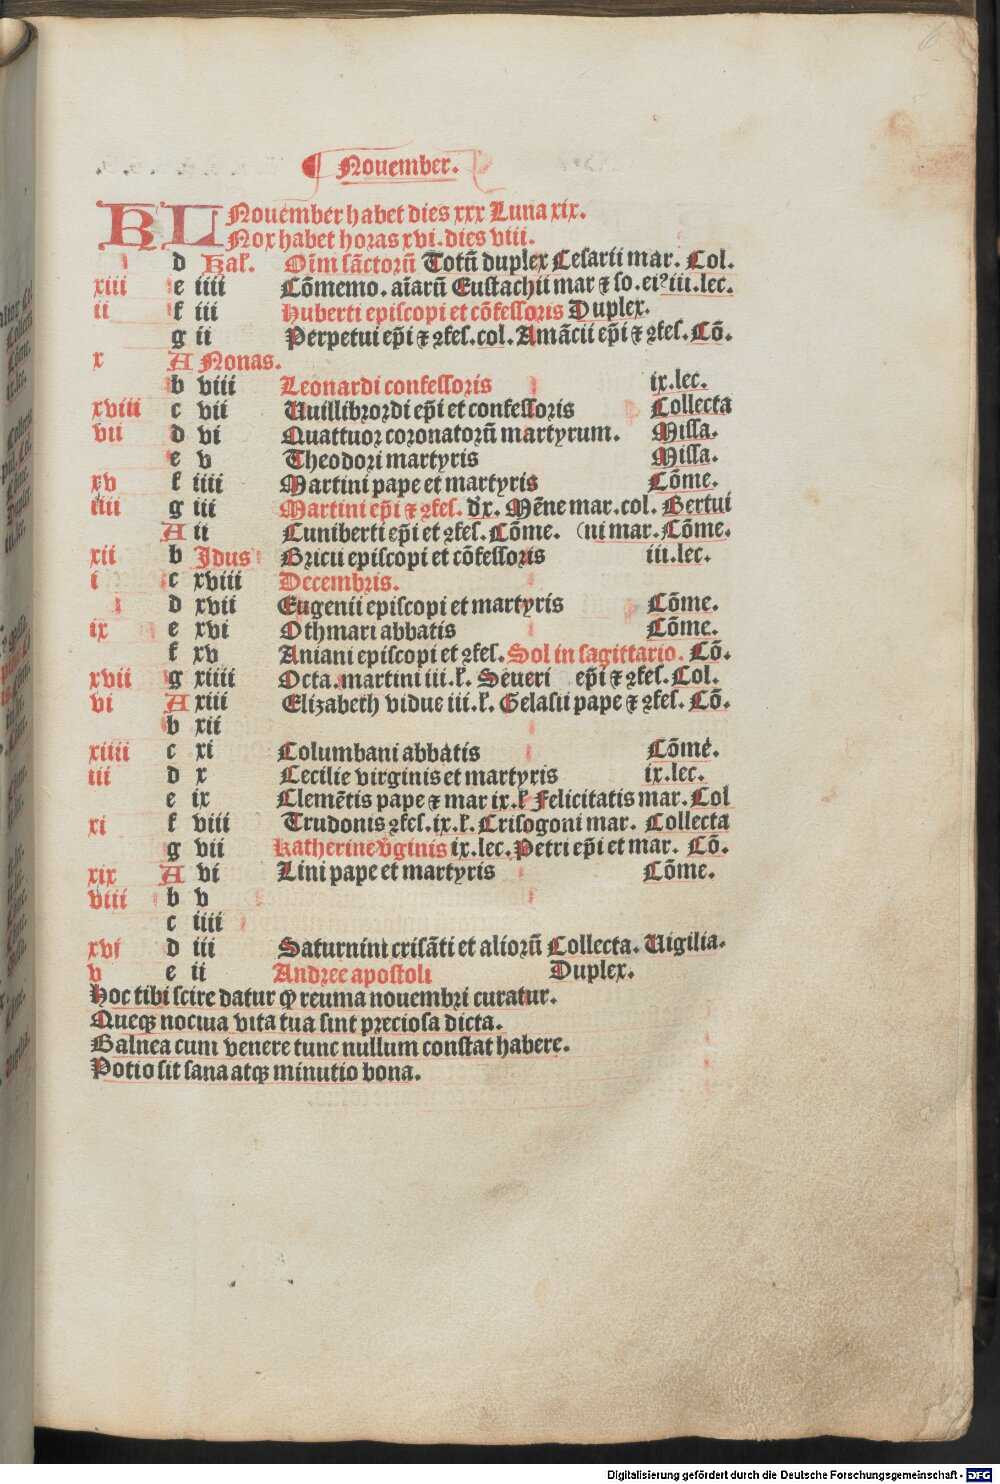 ¶ Nouember.
KL Nouember habet dies xxx Luna xix.
Nox habet horas xvi. dies viii.
d Kal. Oīm sāctorū Totū duplex Cesarii mar. Col.
xiii e iiii Cōmemo. aīarū Eustachii mar ⁊ so. eiꝰ iii. lec.
ii f iii Huberti episcopi et cōfessoris Duplex.
g ii Perpetui ep̄i ⁊ ꝯfes. col. Amācii ep̄i ⁊ ꝯfes. Cō.
x A Nonas.
b viii Leonardi confessoris ix. lec.
xviii c vii Uuillibrordi ep̄i et confessoris Collecta
vii d vi Quattuor coronatorū martyrum. Missa.
e v Theodori martyris Missa.
xv f iiii Martini pape et martyris Cōme.
iiii g iii Martini ep̄i ⁊ ꝯfes. d'x. Mēne mar. col. Bertui
A ii Cuniberti ep̄i et ꝯfes. Cōme. (ni mar. Cōme.
xii b Idus Bricii episcopi et cōfessoris iii. lec.
i c xviii Decembris.
d xvii Eugenii episcopi et martyris Cōme.
ix e xvi Othmari abbatis Cōme.
f xv Aniani episcopi et ꝯfes. Sol in sagittario. Cō.
xvii g xiiii Octa. martini iii. k̄. Seueri ep̄i ⁊ ꝯfes. Col.
vi A xiii Elizabeth vidue iii. k̄. Gelasii pape ⁊ ꝯfes. Cō.
b xii
xiiii c xi Columbani abbatis Cōme.
iii d x Cecilie virginis et martyris ix. lec.
e ix Clemētis pape ⁊ mar ix. k̄ Felicitatis mar. Col
xi f viii Trudonis ꝯfes. ix. k̄. Crisogoni mar. Collecta
g vii Katherine v̄ginis ix. lec. Petri ep̄i et mar. Cō.
xix A vi Lini pape et martyris Cōme.
viii b v
c iiii
xvi d iii Saturnini crisāti et aliorū Collecta. Uigilia.
v e ii Andree apostoli Duplex.
Hoc tibi scire datur ꝙ reuma nouembri curatur.
Queqꝫ nociua vita tua sint preciosa dicta.
Balnea cum venere tunc nullum constat habere.
Potio sit sana atqꝫ minutio bona.
Digitalisierung gefördert durch die Deutsche Forschungsgemeinschaft - DFG